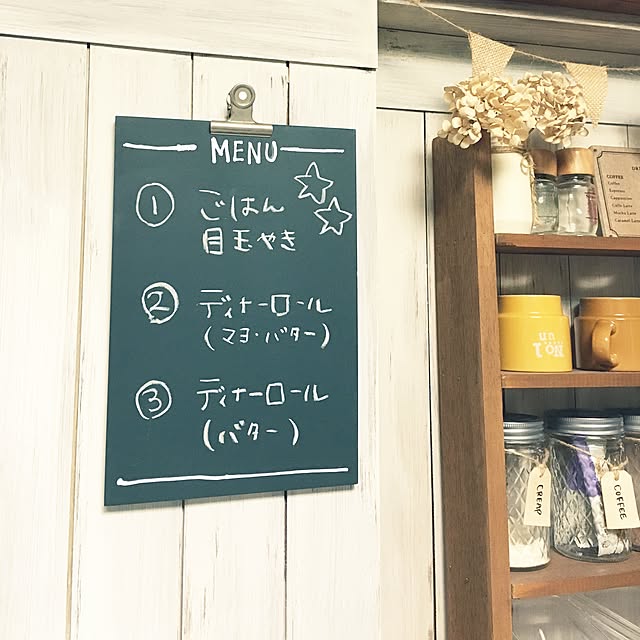 MENU
① ごはん
目玉やき
② ディナーロール
(マヨ・バター)
③ ディナーロール
(バター)
COFFEE
Coffee
Espresso
Cappuccino
Caffe Latte
Mocha Latte
Caramel Latte
un
No.1
CREAP
COFFEE